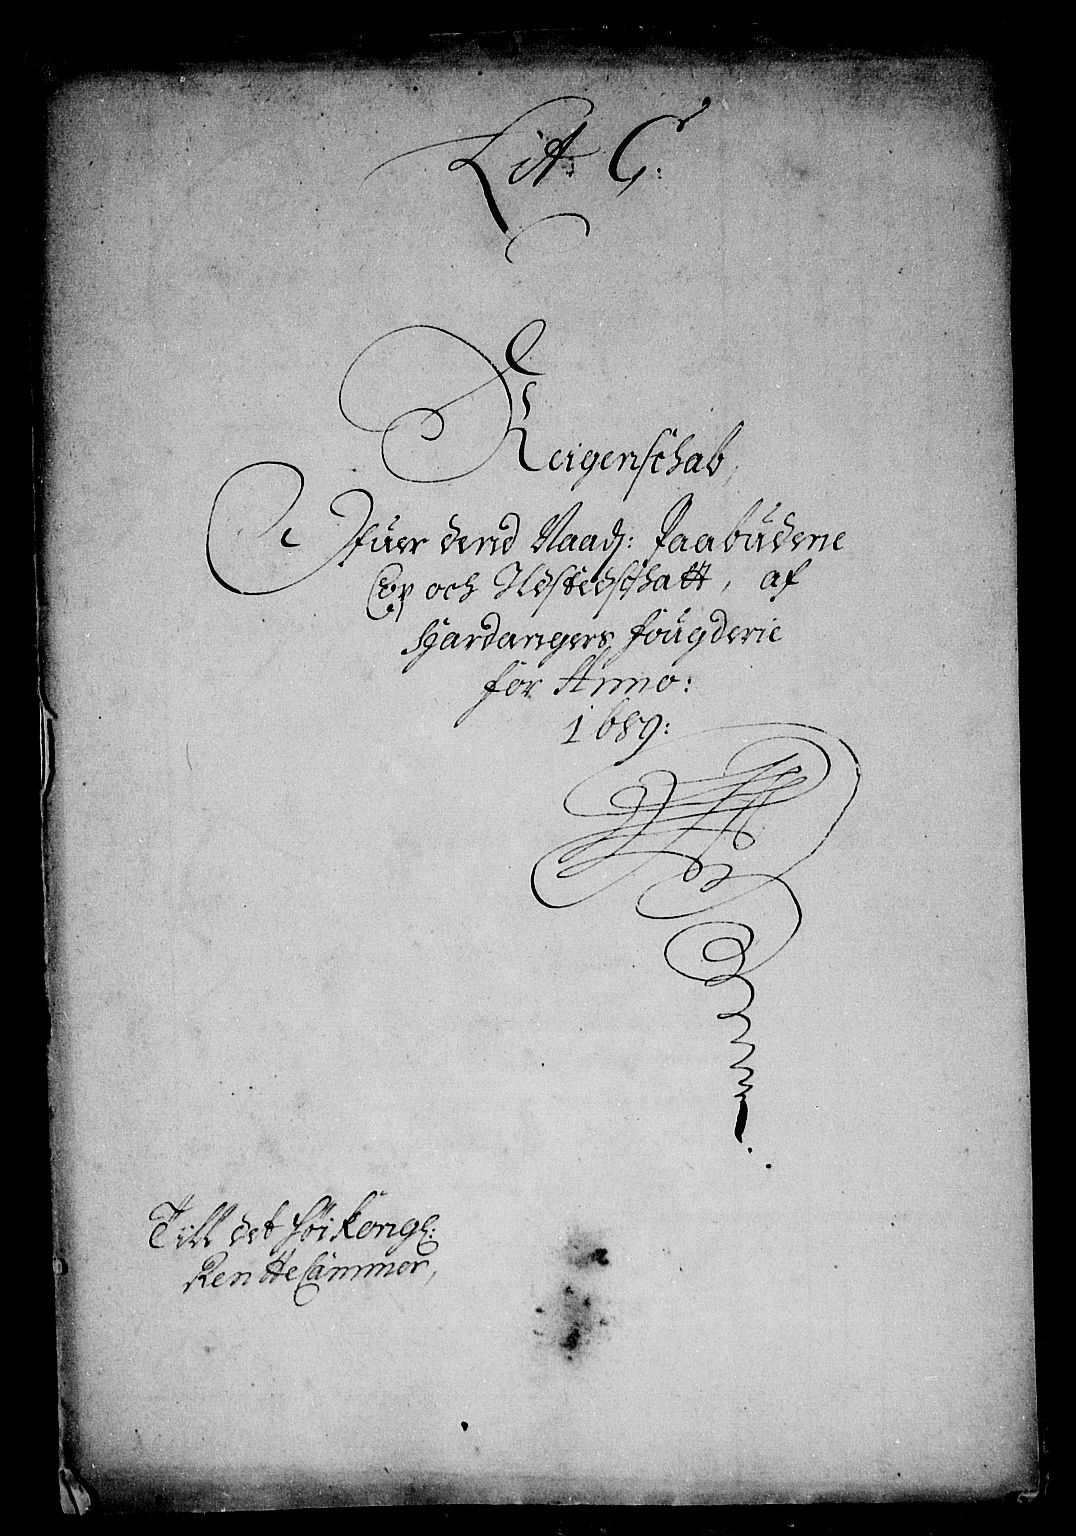 Lit: C:
Reigenschab,
Ofuer dend Naadj: Paabudene
Cop och Ildstedschatt, af
Hardangers fougderie
for Anno:
1689:
Till det Høi Kongl:
RentteCammer,